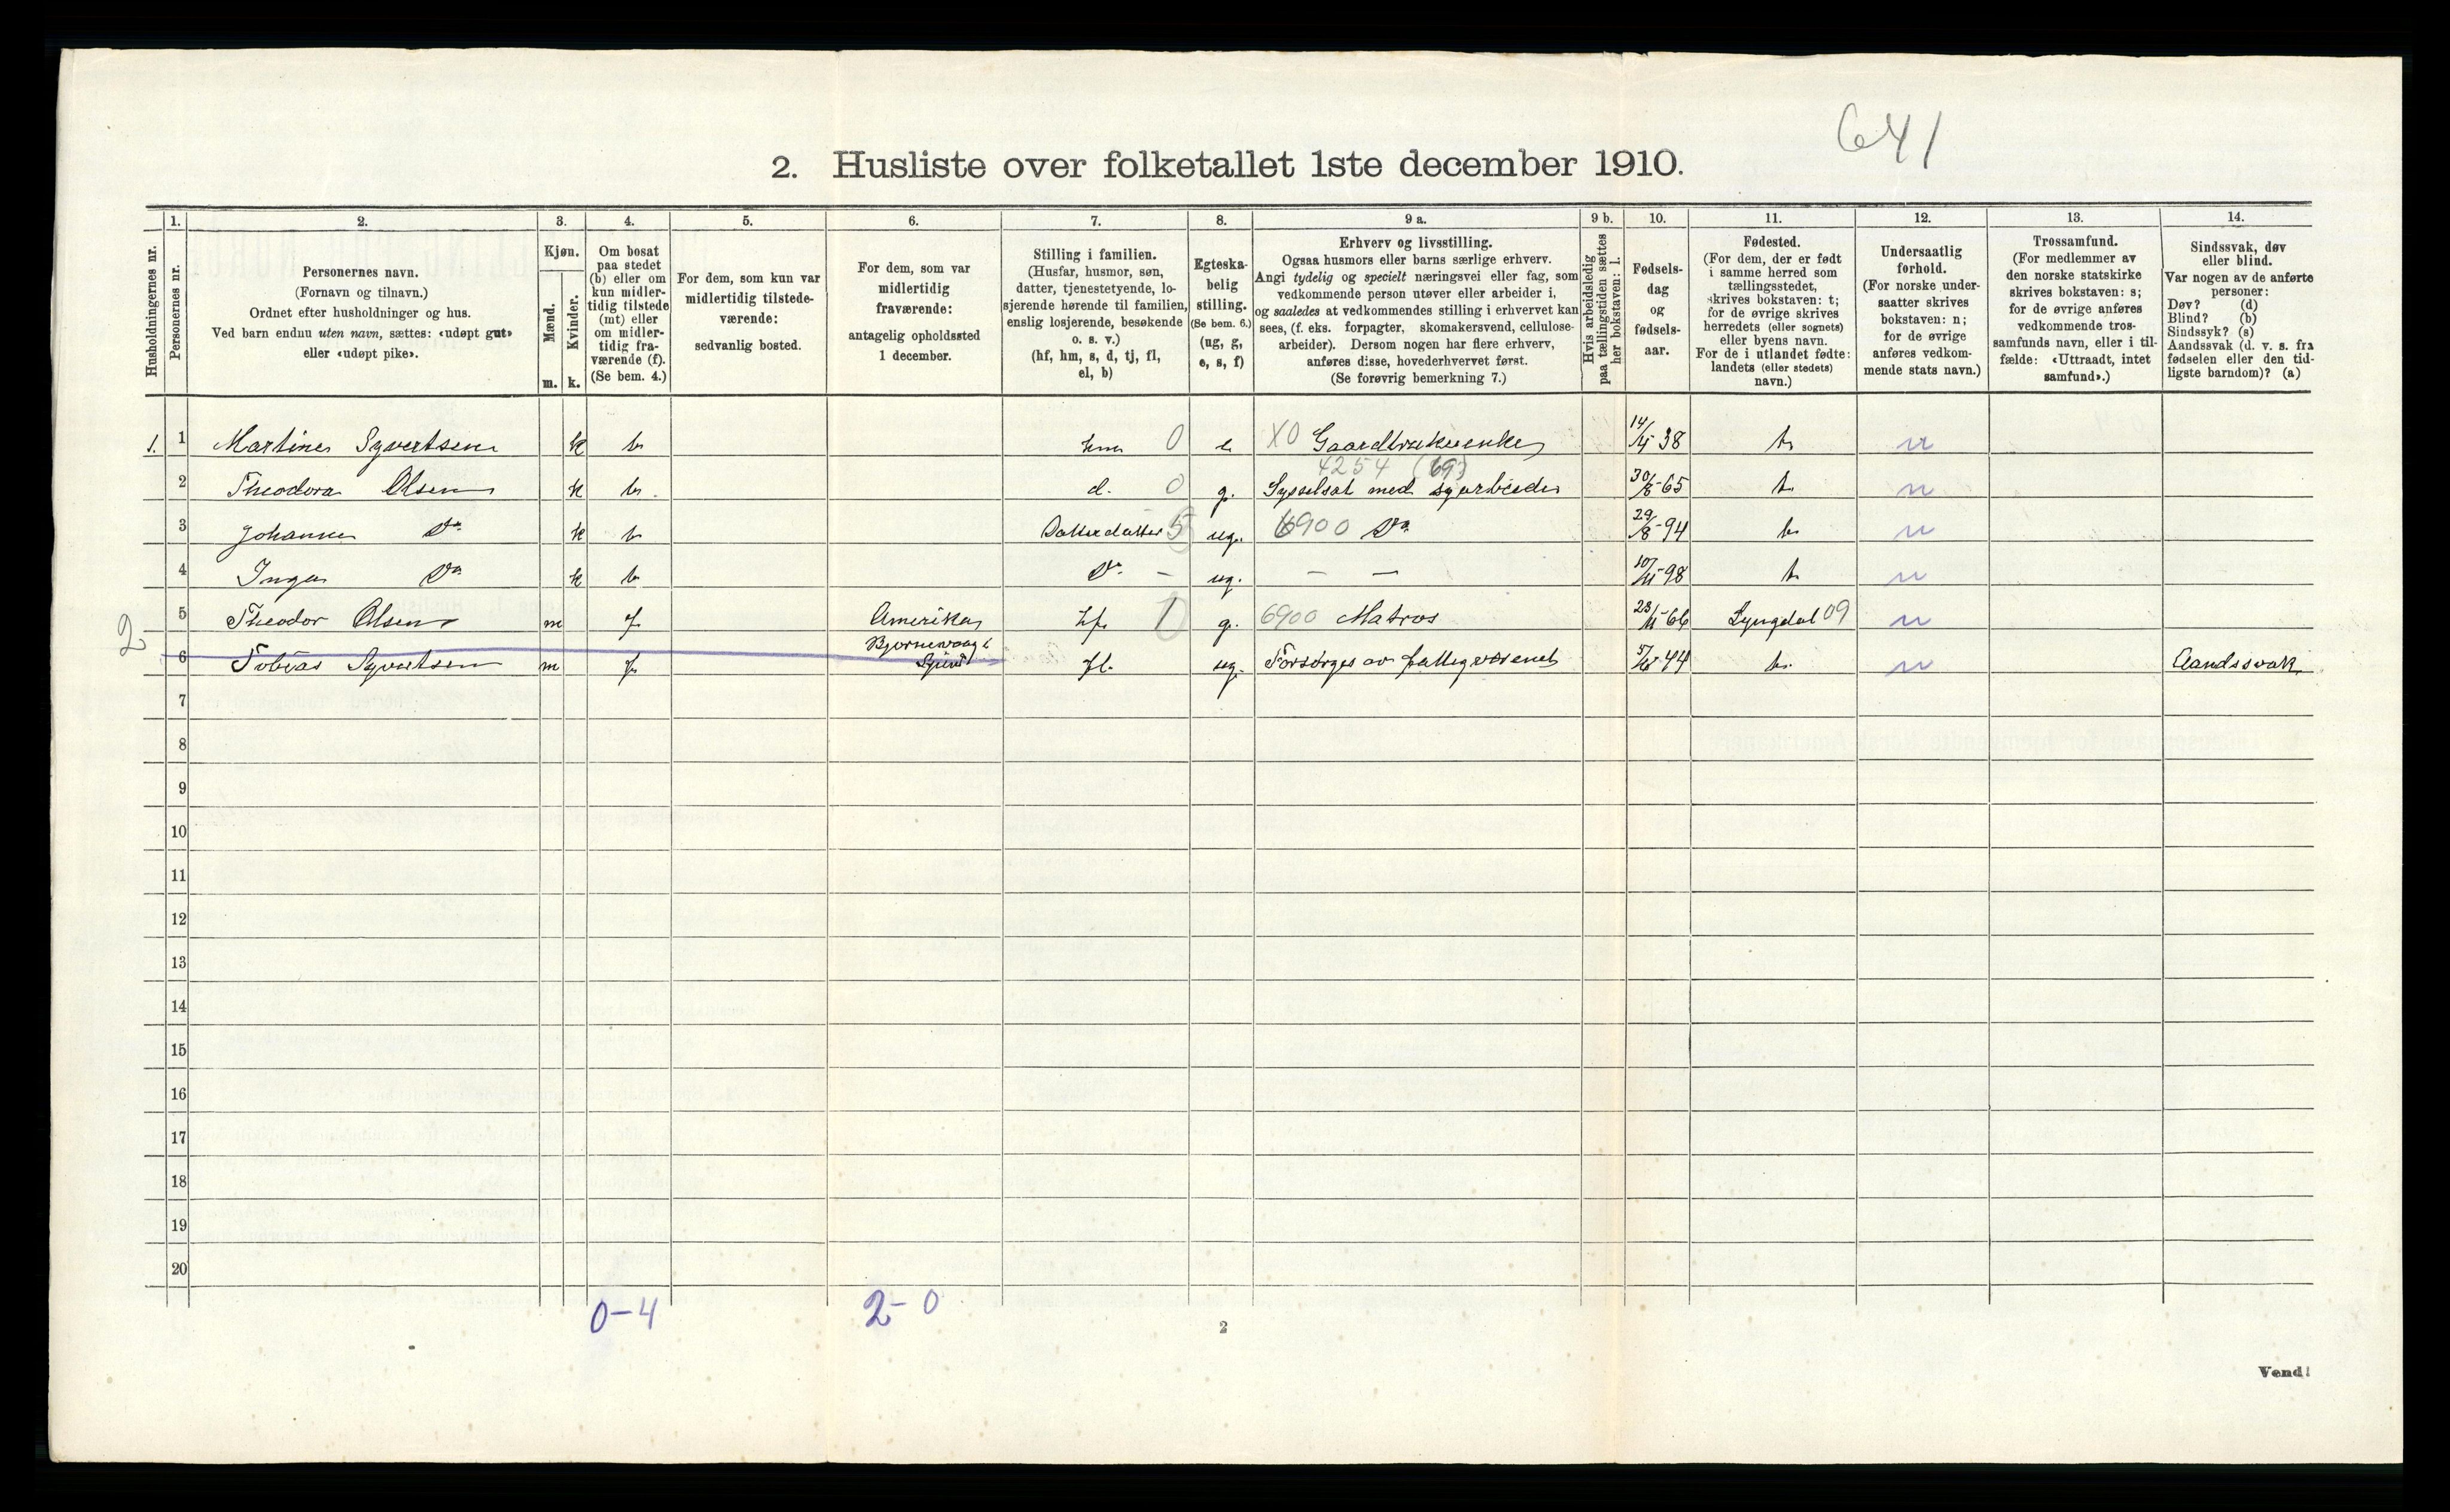 641
2. Husliste over folketallet 1ste december 1910.
Husholdningernes nr.
1.
Personernes nr.
2.
Personernes navn.
(Fornavn og tilnavn.)
Ordnet efter husholdninger og hus.
Ved barn endnu uten navn, sættes: «udøpt gut»
eller «udøpt pike».
3.
Kjøn.
Mænd.
Kvinder.
m. k.
4.
Om bosat
paa stedet
(b) eller om
kun midler-
tidig tilstede
(mt) eller
om midler-
tidig fra-
værende (f).
(Se bem. 4.)
5.
For dem, som kun var
midlertidig tilstede-
værende:
sedvanlig bosted.
6.
For dem, som var
midlertidig
fraværende:
antagelig opholdssted
1 december.
7.
Stilling i familien.
(Husfar, husmor, søn,
datter, tjenestetyende, lo-
sjerende hørende til familien,
enslig losjerende, besøkende
o. s. v.)
(hf, hm, s, d, tj, fl,
el, b)
8.
Egteska-
belig
stilling.
(Se bem. 6.)
(ug, g,
e, s, f)
9 a.
Erhverv og livsstilling.
Ogsaa husmors eller barns særlige erhverv.
Angi tydelig og specielt næringsvei eller fag, som
vedkommende person utøver eller arbeider i,
og saaledes at vedkommendes stilling i erhvervet kan
sees, (f. eks. forpagter, skomakersvend, cellulose-
arbeider). Dersom nogen har flere erhverv,
anføres disse, hovederhvervet først.
(Se forøvrig bemerkning 7.)
9 b.
Hvis arbeidsledig
paa tællingstiden sættes
her bokstaven: l.
10.
Fødsels-
dag
og
fødsels-
aar.
11.
Fødested.
(For dem, der er født
i samme herred som
tællingsstedet,
skrives bokstaven: t;
for de øvrige skrives
herredets (eller sognets)
eller byens navn.
For de i utlandet fødte:
landets (eller stedets)
navn.)
12.
Undersaatlig
forhold.
(For norske under-
saatter skrives
bokstaven: n;
for de øvrige
anføres vedkom-
mende stats navn.)
13.
Trossamfund.
(For medlemmer av
den norske statskirke
skrives bokstaven: s;
for de øvrige anføres
vedkommende tros-
samfunds navn, eller i til-
fælde: «Uttraadt, intet
samfund».)
14.
Sindssvak, døv
eller blind.
Var nogen av de anførte
personer:
Døv? (d)
Blind? (b)
Sindssyk? (s)
Aandssvak (d. v. s. fra
fødselen eller den tid-
ligste barndom)? (a)
1. 1 Martine Syvertsen k b hm 0 e X0 Gaardbrukerenke 38 t n
4254 (69)
2 Theodora Olsen k b. d. 0 g. Sysselsat med syarbeide 30/8-65 t. n
3 Johanne Do k b Datterdatter 5 ug. 6900 Do 29/8-94 t n
4 Inga Do k b Do - ug. - - 10/11-98 t. n
2 5 Theodor Olsen m f Amerika hf. 1 g. 6900 Matros 23/11-66 Lyngdal 09 n
6 Tobias Syvertsen m f fl. ug. Forsørges av fattigvæsenet 44 t. n Aandssvak
7
8
9
10
11
12
13
14
15
16
17
18
19
20
0-4 2-0
2
Vend!